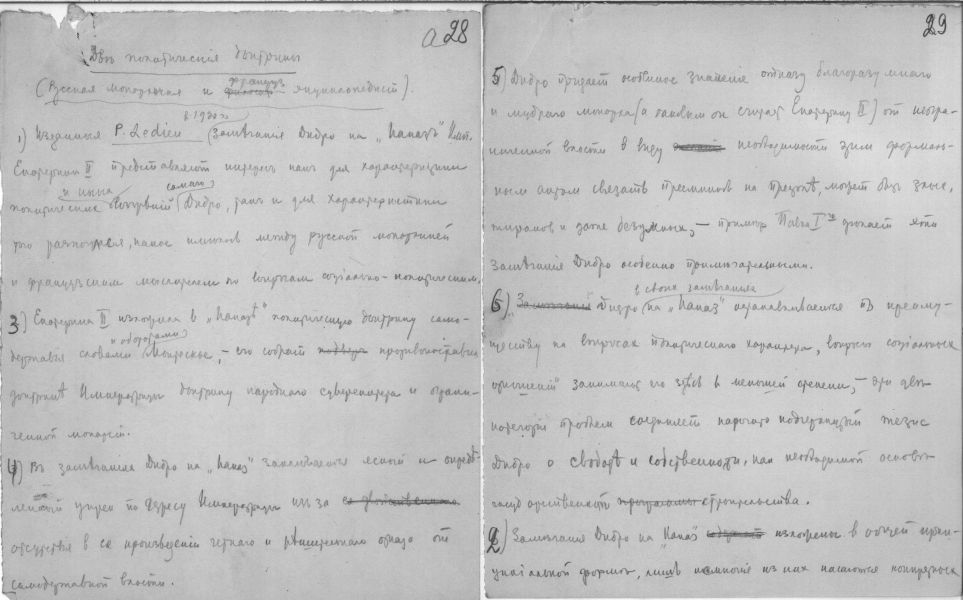 а 28
Двѣ политическія доктрины
(Русская монархическая и француз. философ. энциклопедист).
въ 1920 г.
1) Изданныя P. Ledieu (Замѣчанія Дидро на „Наказъ" Имп.
Екатерины II представляют интересъ какъ для характеристики
и иных самого
политических воззрѣній Дидро, такъ и для характеристики
того разногласія, какое имѣлось между русской монархиней
и французскими мыслителем по вопросам соціально-политическим.
3) Екатерина II изложила в „Наказѣ" политическую доктрину само-
и оборотами
державія словами Монтескье, – его собрат противопоставил
доктринѣ Императрицы доктрину народного суверенитета и ограни-
ченной монархіи.
4) Въ замѣчаніях Дидро на „Наказ" заключается ясный и опредѣ-
ленный упрек по адресу Императрицы из за
отсутствія в ея произведеніи четкаго и рѣшительнаго отказа от
самодержавной власти.
29
5) Дидро придает особенное значеніе отказу благоразумнаго
и мудраго монарха (а таковым он считает Екатерину II) от неогра-
ниченной власти в виду необходимости этим формаль-
ным актом связать преемников на престолѣ, может быть злых,
тиранов и даже безумных, – примѣр Павла I дѣлает эти
замѣчанія Дидро особенно примѣчательными.
в своих замѣчаніях
6) Замѣчанія Дидро на „Наказ" останавливается по преиму-
ществу на вопросах политического характера, вопросы соціальных
отношеній занимают его здѣсь в меньшей степени, – эти двѣ
категоріи проблем соединяет тезис
Дидро о свободѣ и собственности, как необходимой основѣ
государственного программы строительства.
2) Замѣчанія Дидро на „Наказ" изложены в общей прин-
ципіальной формѣ, лишь немногіе из них касаются конкретных